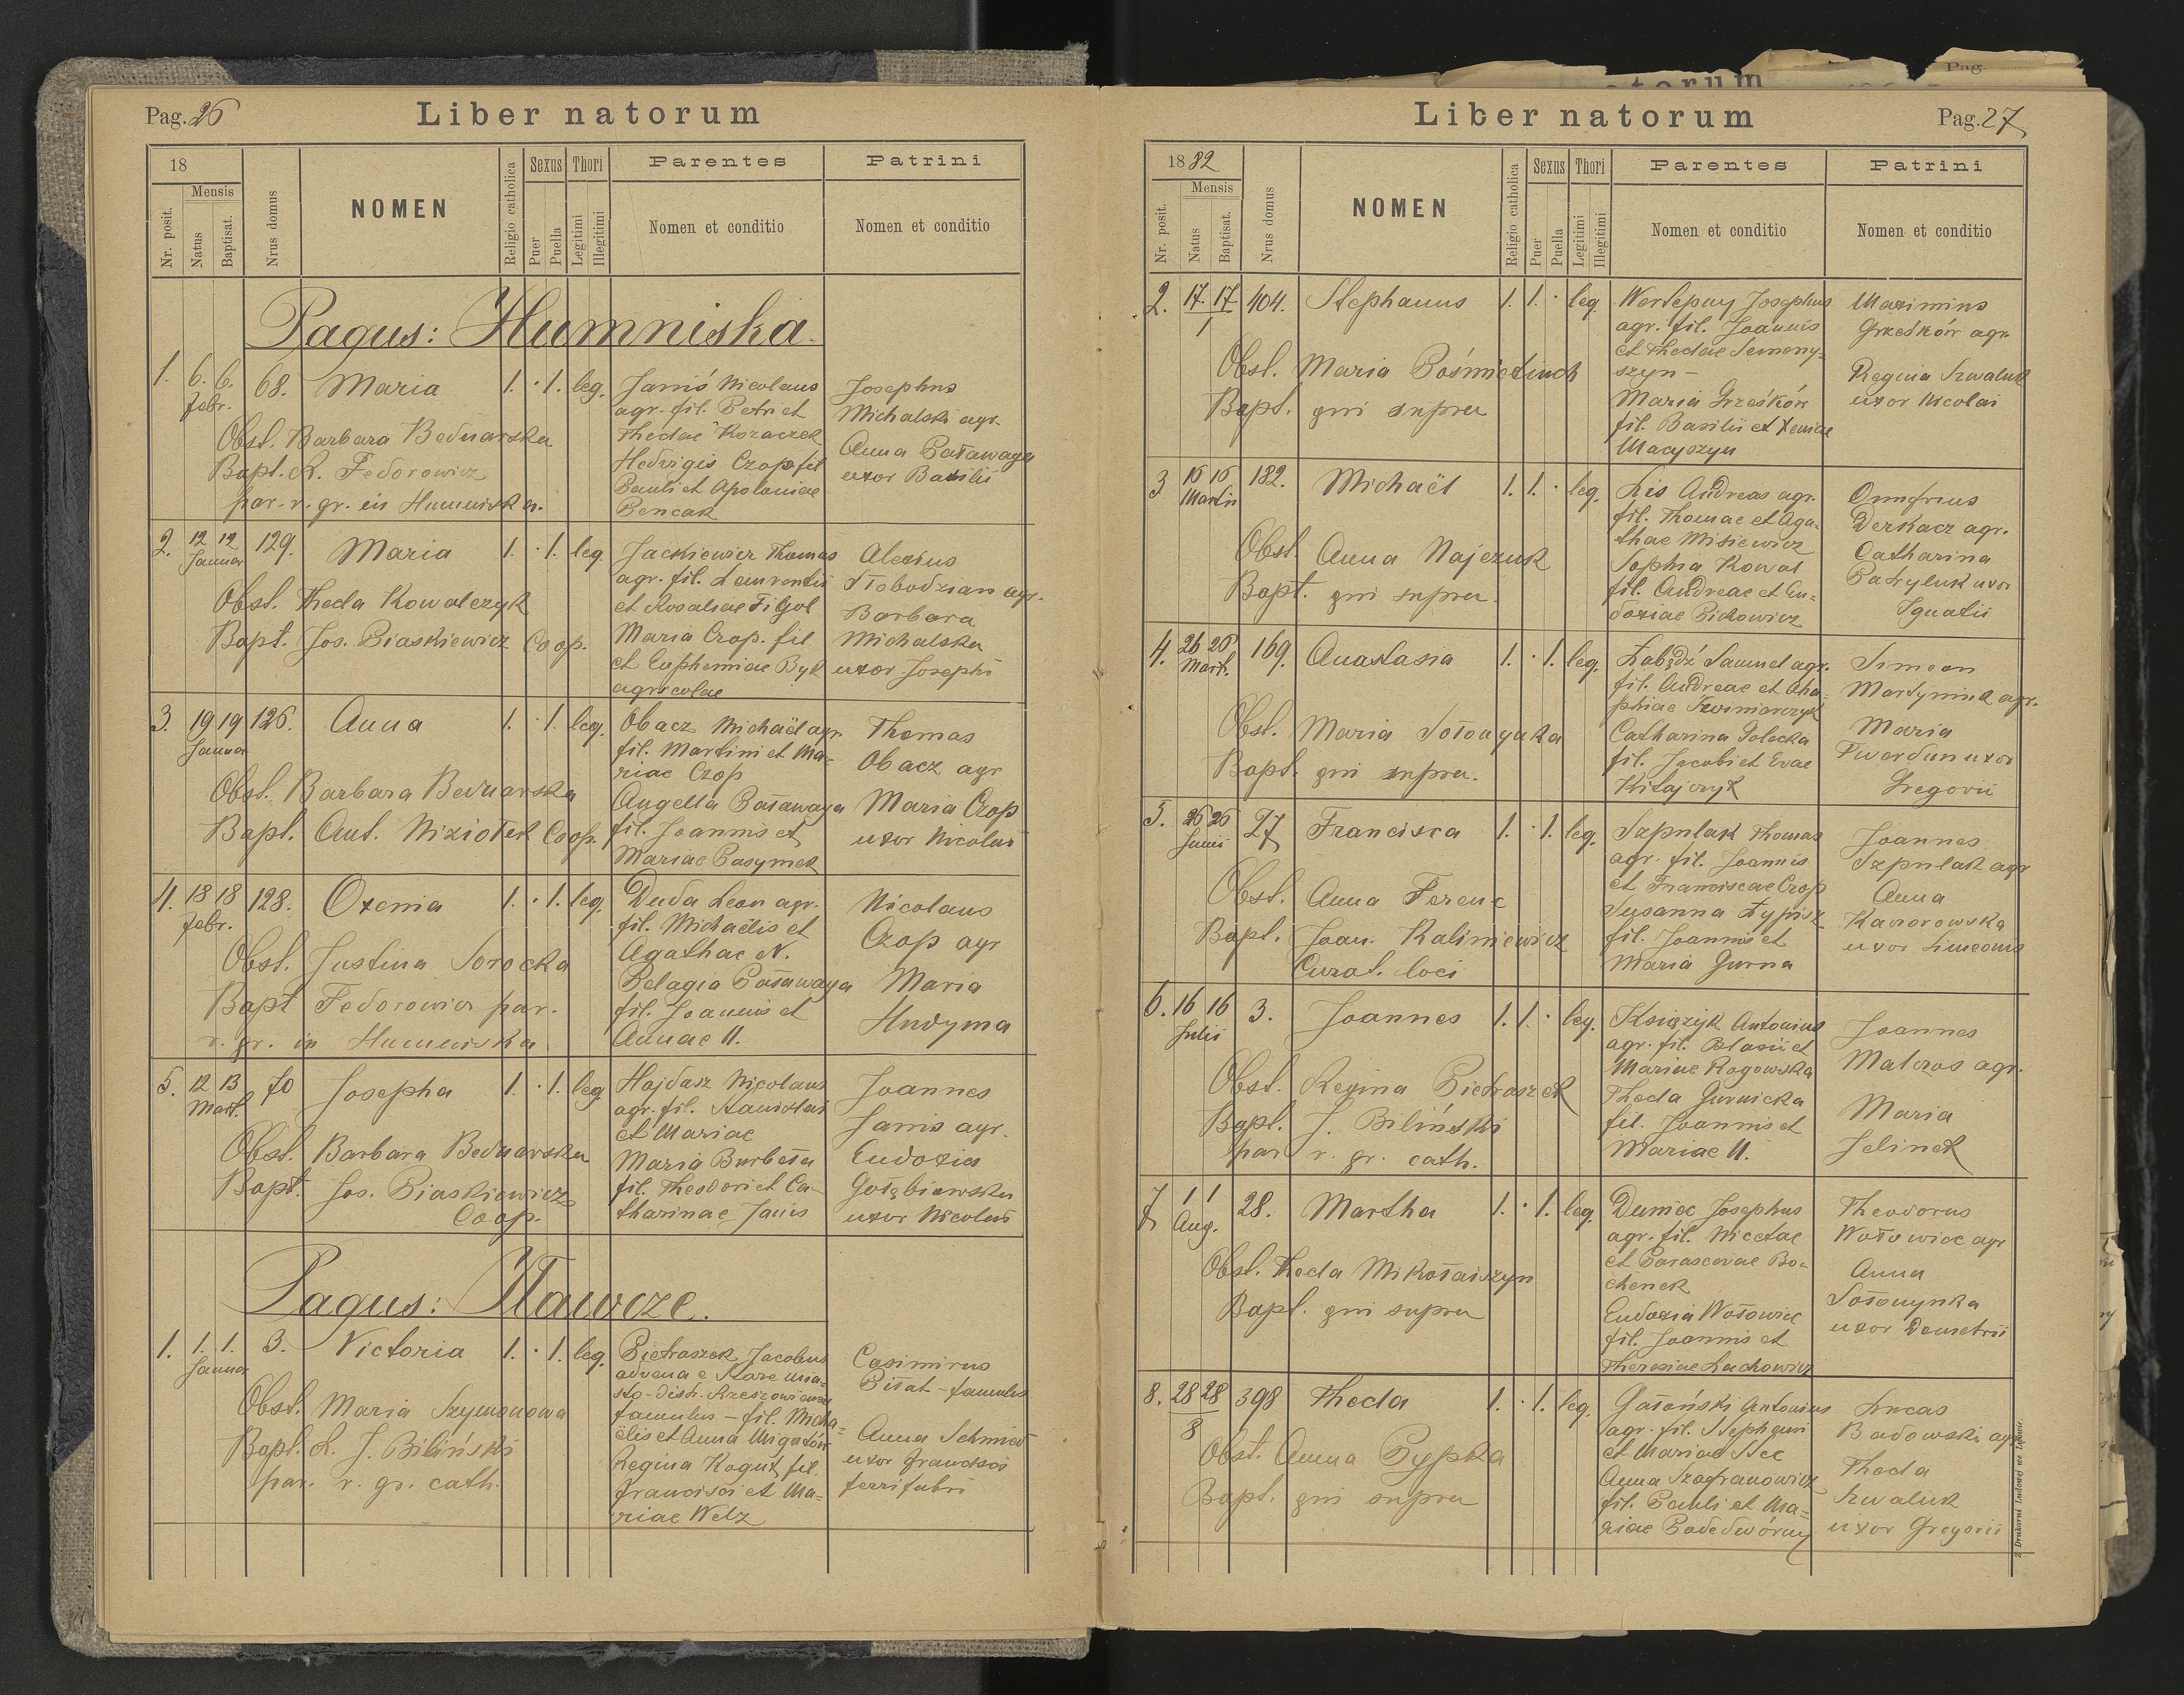 Pag. 26
Liber natorum
18
Mensis
Nr. posit.
Natus
Baptisat.
Nrus domus
NOMEN
Religio catholica
Sexus
Puer
Puella
Thori
Legitimi
Illegitimi
Parentes
Nomen et conditio
Patrini
Nomen et conditio
Pagus: Humniska.
1. 6. 6. Febr. 68. Maria 1. · 1. leg.
Obst. Barbara Bednarska
Bapt. R. Fedorowicz
par. r. gr. in Humniska.
Janiś Nicolaus
agr. fil. Petri et
Theclae Kozaczek
Hedvigis Czop fil
Pauli et Apoloniae
Bencak
Josephus
Michalski agr.
Anna Pasawaya
uxor Basilii
2. 12 12 Januar 129. Maria 1. · 1. leg
Obst. Thecla Kowalczyk
Bapt. Jos. Piaskiewicz Coop.
Jackiewicz Thomas
agr. fil. Laurentii
et Rosaliae Figol
Maria Czop. fil
et Euphemiae Byk
agricolae
Alexius
Słobodzian agr.
Barbara
Michalska
uxor Josephi
3. 19 19 Januar 126. Anna 1. · 1. leg.
Obst. Barbara Bednarska
Bapt. Ant. Niziołek Coop.
Obacz Michaël agr.
fil. Martini et Ma-
riae Czop
Angella Pasawaya
fil. Joannis et
Mariae Pasymek
Thomas
Obacz agr
Maria Czop
uxor Nicolai
4. 18 18 Febr. 128. Oxenia 1. · 1. leg.
Obst. Justina Sorocka
Bapt Fedorowicz par.
r. gr. in Humniska.
Duda Leon agr.
fil. Michaëlis et
Agathae N.
Pelagia Pasawaya
fil. Joannis et
Annae N.
Nicolaus
Czop agr
Maria
Hudyma
5. 12 13 Mart. 70 Josepha 1. · 1. leg
Obst. Barbara Bednarska
Bapt. Jos. Piaskiewicz
Coop.
Hajdasz Nicolaus
agr. fil. Stanislai
et Mariae
Maria Burbeła
fil. Theodori et Ca-
tharinae Janis
Joannes
Janis agr.
Eudoxia
Gołąbiowska
uxor Nicolai
Pagus: Iławcze.
1. 1. 1. Januar 3. Victoria 1. · 1. leg.
Obst. Maria Szymonowa
Bapt. R. J. Biliński
par. r. gr. cath.
Pietraszek Jacobus
advena e Stare Mia-
sto - distr.
famulus - fil. Micha-
ëlis et Anna
Regina Kogut fil.
Francisci et Ma-
riae Welz
Casimirus
Piłat - famulus
Anna Schmidt
uxor Francisci
ferrifabri
Liber natorum
Pag. 27
1882
Mensis
Nr. posit.
Natus
Baptisat.
Nrus domus
NOMEN
Religio catholica
Sexus
Puer
Puella
Thori
Legitimi
Illegitimi
Parentes
Nomen et conditio
Patrini
Nomen et conditio
2. 17. 17. 1 404. Stephanus 1. 1. · leg
Obst. Maria
Bapt. qui supra
Werlepny Josephus
agr. fil. Joannis
et Theclae Semeny-
szyn -
Maria Grześków
fil. Basilii et Xeniae
Macyszyn
Maximus
Grześków agr.
Regina Szwaluk
uxor Nicolai
3. 16 16 Martii 182. Michaël 1. 1. · leg.
Obst Anna Najczuk
Bapt. qui supra.
Lis Andreas agr.
fil. Thomae et Aga-
thae Misiewicz
Sophia Kowal
fil. Andreae et Eu-
doxiae Pichowicz
Onufrius
Derkacz agr.
Catharina
Patryluk uxor
Ignatii
4. 26 26 Mart. 169. Anastasia 1. · 1. leg.
Obst. Maria Sołonynka
Bapt. qui supra.
Łabędź Samuel agr.
fil. Andreae et Aha-
phiae Zwiniarczyk
Catharina Solecka
fil. Jacobi et Evae
Kitajczyk
Simeon
Martyniuk agr.
Maria
Twerdun uxor
Gregorii
5. 26 26 Junii 27 Francisca 1. · 1. leg.
Obst. Anna Ferenc
Bapt. Joan. Kaliniewicz
Curat. loci
Szpulak Thomas
agr. fil. Joannis
et Franciscae Czop
Susanna
fil. Joannis et
Maria Gurna
Joannes
Szpulak agr
Anna
Kaczorowska
uxor Simeonis
6. 16 16 Julii 3. Joannes 1. 1. · leg.
Obst. Regina Pietraszek
Bapt. J. Biliński
par r. gr. cath.
Księżyk Antonius
agr. fil. Blasii et
Mariae Rogowska
Thecla Gurnicka
fil. Joannis et
Mariae N.
Joannes
Matczos agr.
Maria
Jelinek
7. 1 1 Aug. 28. Martha 1. · 1. leg.
Obst. Thecla Mikołaiszyn
Bapt. qui supra
Duniec Josephus
agr. fil. Nicetae
et Parascevae Bo-
chenek
Eudoxia Wołowiec
fil. Joannis et
Theresiae Lachowicz
Theodorus
Wołowiec agr
Anna
Sołonynka
uxor Demetrii
8. 28 28 8 398 Thecla 1. · 1. leg.
Obst. Anna Pypka
Bapt. qui supra
Gałoński Antonius
agr. fil. Stephani
et Mariae Stec
Anna Szafranowicz
fil. Pauli et Ma-
riae Podedwórny
Lucas
Badowski agr
Thecla
Szwaluk
uxor Gregorii
Z Drukarni Ludowej we Lwowie.